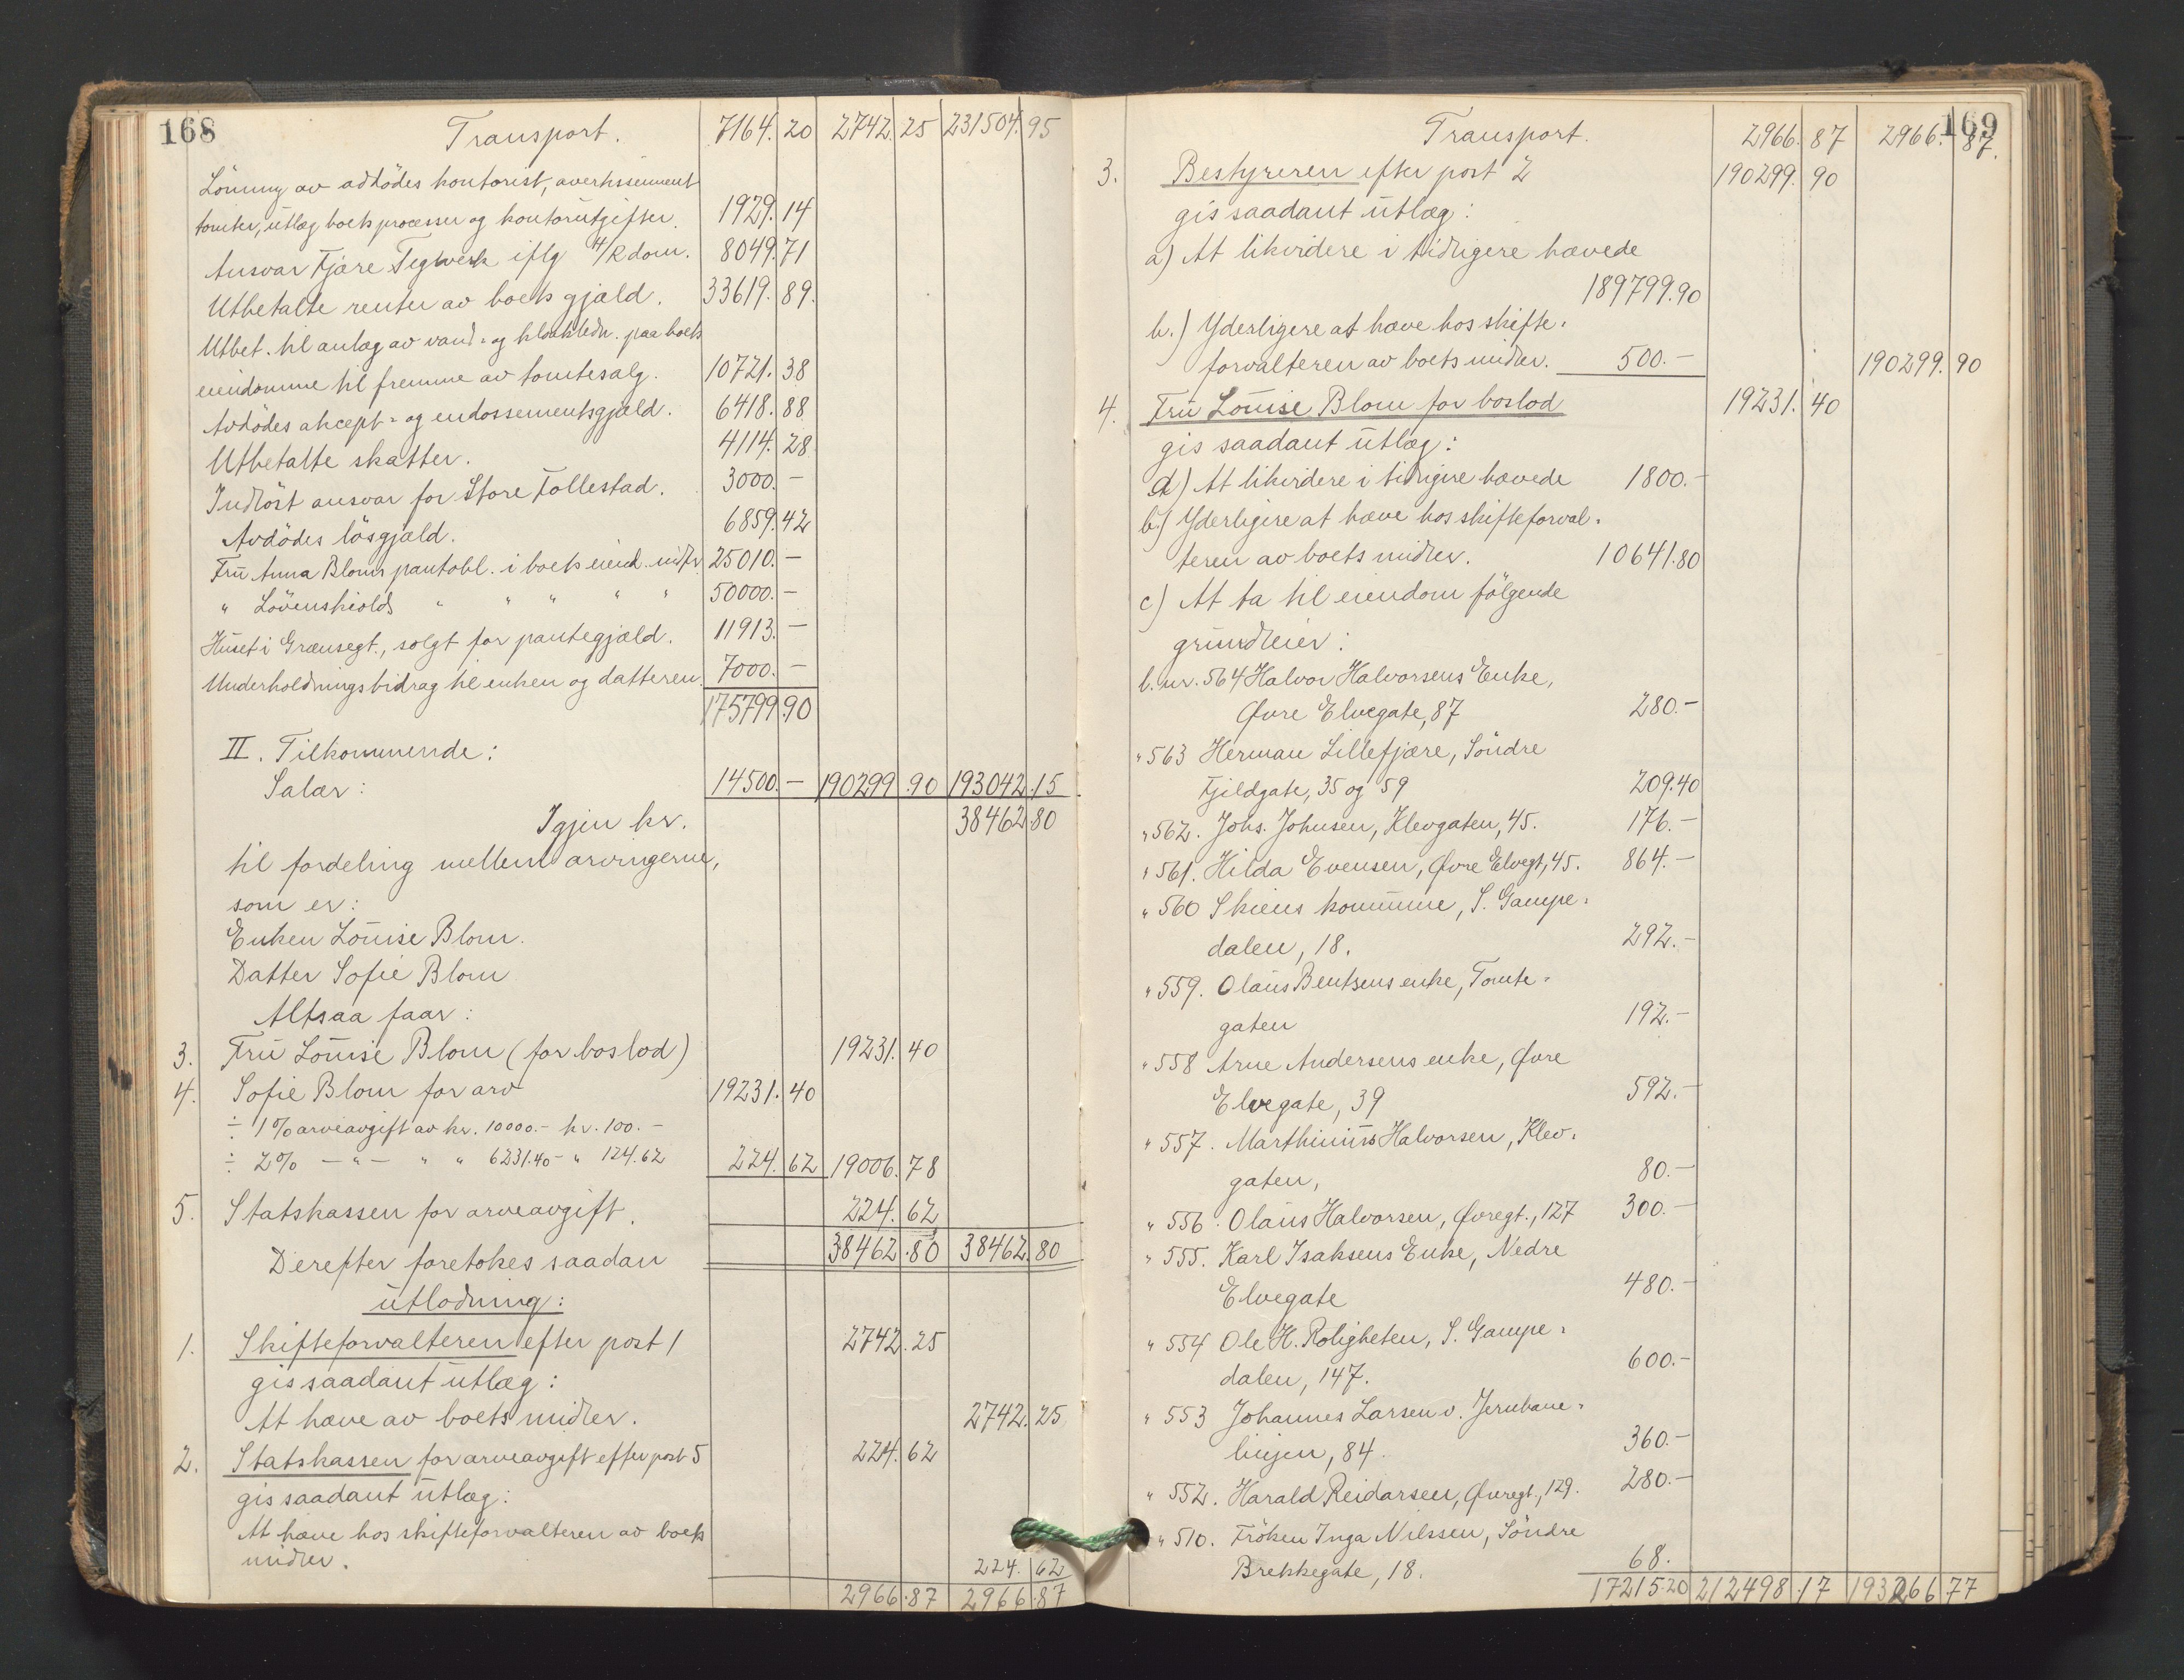 168
Transport. 7164. 20 2742. 25 231504. 95
Lönning av avdödes kontorist, avertissement
tomter, utlæg boets processer og kontorutgifter. 1929. 14
Ansvar Fjære Teglverk iflg H/R dom. 8049. 71
Utbetalte renter av boets gjæld. 33619. 89.
Utbet. til anlæg av vand- og kloakledn. paa boets
eiendomme til fremme av tomtesalg. 10721. 38
Avdödes akcept- og endossementsgjæld. 6418. 88
Utbetalte skatter. 4114. 28
Indlöst ansvar for Store Follestad. 3000. –
Avdödes lösgjæld. 6859. 42
Frü Anna Bloms pantobl. i boets eiend. indfr. 25010. –
" Lövenskiolds " " " " " 50000. –
Huset i Grænsegt., solgt for pantegjæld. 11913. –
Underholdningsbidrag til enken og datteren. 7000. –
175799. 90
II. Tilkommende:
Salær: 14500. – 190299. 90 193042. 15
Igjen kr. 38462. 80
til fordeling mellem arvingerne,
som er:
Enken Louise Blom.
Datter Sofie Blom
Altsaa faar:
3. Frü Louise Blom (for boslod) 19231. 40
4. Sofie Blom for arv 19231. 40
÷ 1% arveavgift av kr. 10000.- kr. 100. –
÷ 2% – " – " " 6231.40 – " 124.62 224. 62 19006. 78
5. Statskassen for arveavgift. 224. 62
38462. 80 38462. 80
Derefter foretokes saadan
utlodning:
1. Skifteforvalteren efter post 1 2742. 25
gis saadant utlæg:
At hæve av boets midler. 2742. 25
2. Statskassen for arveavgift efter post 5 224. 62
gis saadant utlæg:
At hæve hos skifteforvalteren av boets
midler. 224. 62
2966. 87 2966. 87
169
Transport. 2966. 87 2966. 87.
3. Bestyreren efter post 2 190299. 90
gis saadant utlæg:
a) At likvidere i tidligere hævede
189799.90
b.) Yderligere at hæve hos skifte-
forvalteren av boets midler. 500. – 190299. 90
4. Frü Louise Blom for boslod 19231. 40
gis saadant utlæg:
a) At likvidere i tidligere hævede 1800. –
b.) Yderligere at hæve hos skifteforval-
teren av boets midler. 10641.80
c) At ta til eiendom fölgende
grundleier:
l. nr. 564 Halvor Halvorsens Enke,
Øvre Elvegate, 87 280. –
" 563 Herman Lillefjære, Söndre
Fjeldgate, 35 og 59 209.40
" 562. Johs. Johnsen, Klevgaten, 45. 176. –
" 561. Hilda Evensen, Øvre Elvegt, 45. 864. –
" 560 Skiens kommune, S. Gampe-
dalen, 18. 292. –
" 559. Olaus Bentsens enke, Tomte-
gaten 192. –
" 558 Arne Andersens enke, Øvre
Elvegate, 39 592. –
" 557. Marthinius Halvorsen, Klev-
gaten, 80. –
" 556. Olaus Halvorsen, Øvregt., 127 300. –
" 555. Karl Isaksens Enke, Nedre
Elvegate 480. –
" 554 Ole H. Roligheten, S. Gampe-
dalen, 147. 600. –
" 553 Johannes Larsen v. Jernbane-
linjen, 84. 360. –
" 552. Harald Reidarsen, Øvregt., 129. 280. –
" 510. Fröken Inga Nilssen, Söndre
Brekkegate, 18. 68.
17215.20 212498. 17 193266. 77